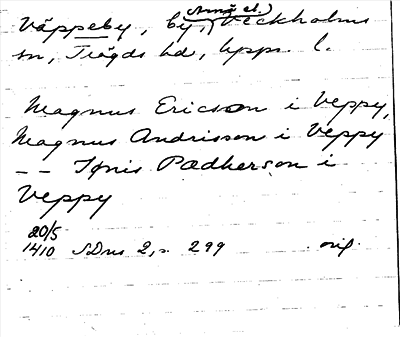 Väppeby, by, (Arnö el.) Veckholms
sn, Trögds hd, Upps. l.
Magnus Ericson i Veppy,
Magnus Andrisson i Veppy
-- Iønis Pædherson i
Veppy
20/5
1410 SDns 2, s. 299 orig.